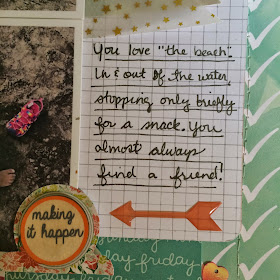 You love "the beach".
In & out of the water
stopping only briefly
for a snack. You
almost always
find a friend!
making
it happen
friday